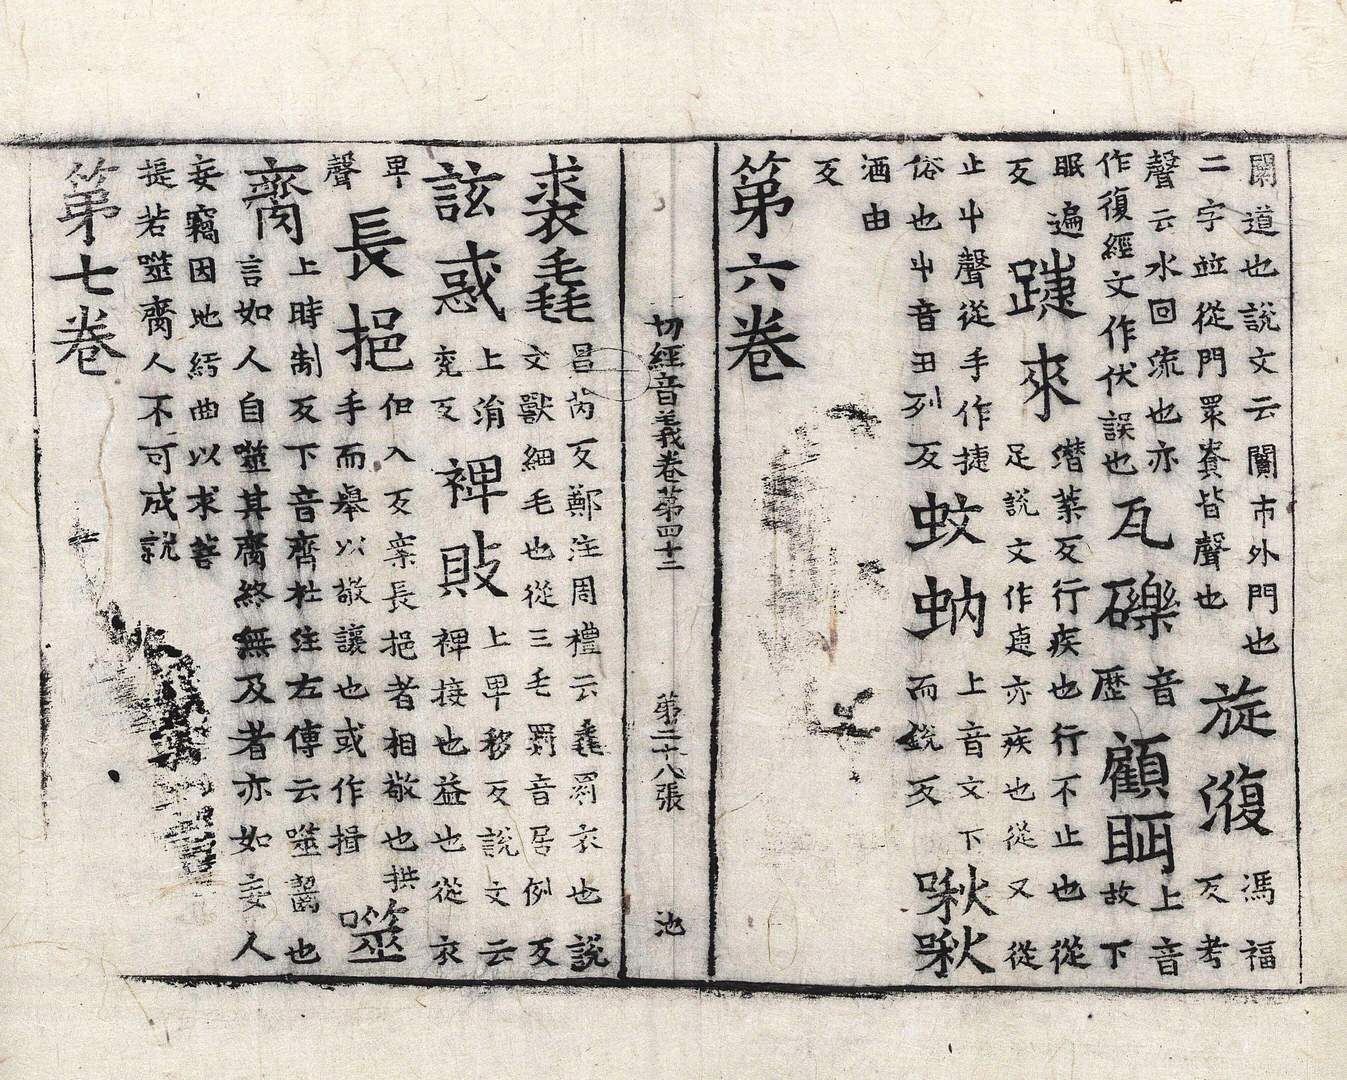 闠道也說文云闤市外門也二字並從門睘貴皆聲也旋澓馮福反考
聲云水回流也亦作復經文作伏誤也瓦礫音歷顧眄上音故下
眠遍反踕來潛葉反行疾也行不止也從足說文作疌亦疾也從又從
止屮聲從手作捷俗也屮音丑列反蚊蚋上音文下而銳反啾啾
酒由反
第六卷
切經音義卷第四十二 第二十八張 池
裘毳昌芮反鄭注周禮云毳罽衣也說文獸細毛也從三毛罽音居例反
詃惑上涓兖反裨販上卑移反說文云裨接也益也從衣
卑聲長挹伊入反案長挹者相敬也拱手而舉以敬讓也或作揖噬
臍上時制反下音齊杜注左傳云噬齧也言如人自噬其臍終無及者亦如妄人
妄竊因地紆曲以求菩提若噬臍人不可成就
第七卷